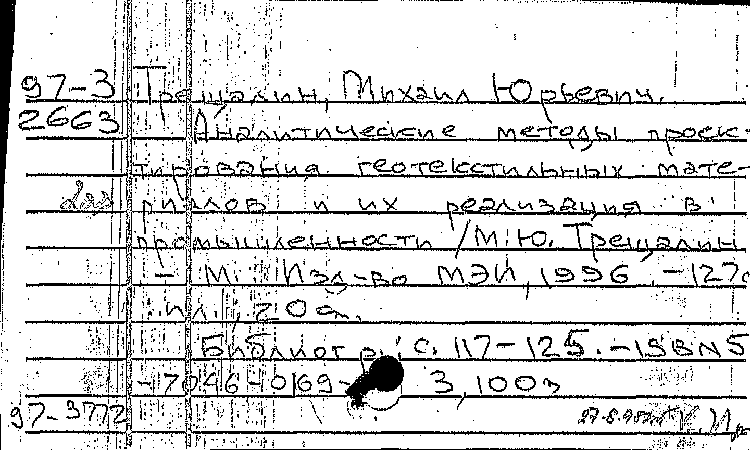 97-3 Трещалин, Михаил Юрьевич.
2663 Аналитические методы проек-
тирования геотекстильных мате-
риалов и их реализация в
промышленности / М.Ю. Трещалин
- М.: Изд-во МЭИ, 1996. -127с
: ил., 20 см.
Библиогр.: с. 117-125. - ISBN 5
-7046-0169- 3,100э
97-3772